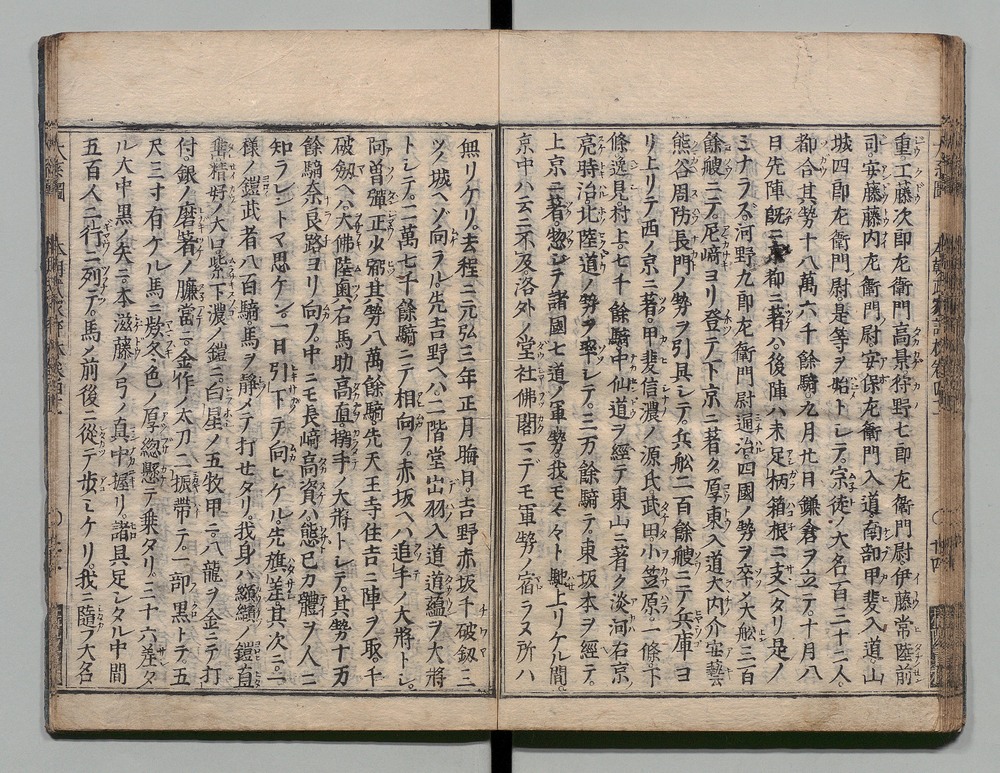 重工藤次郎左衛門高景狩野七郎左衛門尉伊藤常陸前
司安藤藤内左衛門尉安保左衛門入道南部甲斐入道山
城四郎左衛門尉是等ヲ始トシテ宗徒ノ大名百三十二人
都合其勢十八萬六千餘騎九月廿日鎌倉ヲ立テ十月八
日先陣既ニ都ニ著ハ後陣ハ未足柄箱根ニ支ヘタリ是ノ
ミナラス河野九郎左衛門尉通治四國ノ勢ヲ卒メ大舩三百
餘艘ニテ尼﨑ヨリ登テ下京ニ著ク厚東入道大内介安藝
熊谷周防長門ノ勢ヲ引具シテ兵舩二百餘艘ニテ兵庫ヨ
リ上リテ西ノ京ニ著甲斐信濃ノ源氏武田小笠原一條下
條逸見村上七千餘騎中仙道ヲ經テ東山ニ著ク淡河右京
亮時治北陸道ノ勢ヲ率シテ三万餘騎テ東坂本ヲ經テ
上京ニ著惣シテ諸國七道ノ軍勢我モ々々ト馳上リケル間
京中ハ云ニ不及洛外ノ堂社佛閣マテモ軍勢ノ宿ラヌ所ハ
無リケリ去程ニ元弘三年正月晦日吉野赤坂千破釼三
ツノ城ヘソ向ラル先吉野ヘハ二階堂出羽入道道蘊ヲ大將
トシテ一萬七千餘騎ニテ相向フ赤坂ヘハ追手ノ大將トシ
阿曽彈正少弼其勢八萬餘騎先天王寺住吉ニ陣ヲ取千
破劔ヘハ大佛陸奥右馬助高直搦手ノ大將トシテ其勢十万
餘騎奈良路ヨリ向フ中ニモ長﨑高資ハ態己カ體ヲ人ニ
知ラレントマ思ケン一日引下テ向ヒケル先旗差其次ニ二
樣ノ鎧武者八百騎馬ヲ靜メテ打セタリ我身ハ纐纈ノ鎧直
垂精好ノ大口紫下濃ノ鎧ニ白星ノ五枚甲ニ八龍ヲ金ニテ打
付銀ノ磨著ノ臑當ニ金作ノ太刀二振帯テ一部黒トテ五
尺三寸有ケル馬ニ欵冬色ノ厚総懸テ乗タリ三十六差タ
ル大中黒ノ矢ニ本滋藤ノ弓ノ真中握リ諸具足シタル中間
五百人二行ニ列テ馬ノ前後ニ從テ歩ミケリ我ニ隨フ大名